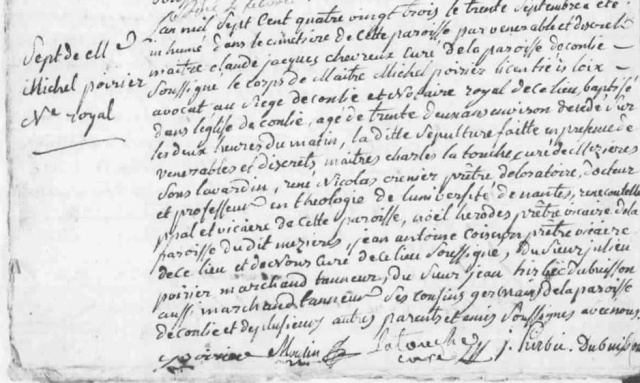 Sept de Me
Michel poirier
Nre royal
L'an mil sept Cent quatre vingt trois le trente Septembre a ete
inhumé dans le cimetiere de cette paroisse par venerable et discret
maitre claude jacques chevreux Curé de la paroisse de conlie
Soussigné le corps de Maitre Michel poirier licentié es loix
avocat au Siege de conlie et Notaire royal de ce lieu baptisé
dans l'eglise de conlie, agé de trente deux ans environ decedé Sur
les deux heures du matin, la ditte Sepulture faitte en presence de
venerables et discrets, maitres charles la touche curé de Mezieres
Sous lavardin, rene Nicolas crenier prêtre de loratoire, docteur
et professeur en theologie de luniversité de nantes, rene coutelle
ppal et vicaire de cette paroisse, noël herodes prêtre vicaire de la
paroisse du dit mezieres, jean antoine prêtre vicaire
de ce lieu et de Nous Curé de ce lieu Soussigné, du Sieur julien
poirier marchand tanneur, du Sieur jean hirbec dubuisson
aussi marchand tanneur Ses cousins germains de la paroisse
de conlie et de plusieurs autres parents et amis Soussignés avec nous
poirier Moulin La touche j. hirbec Dubuisson
curé